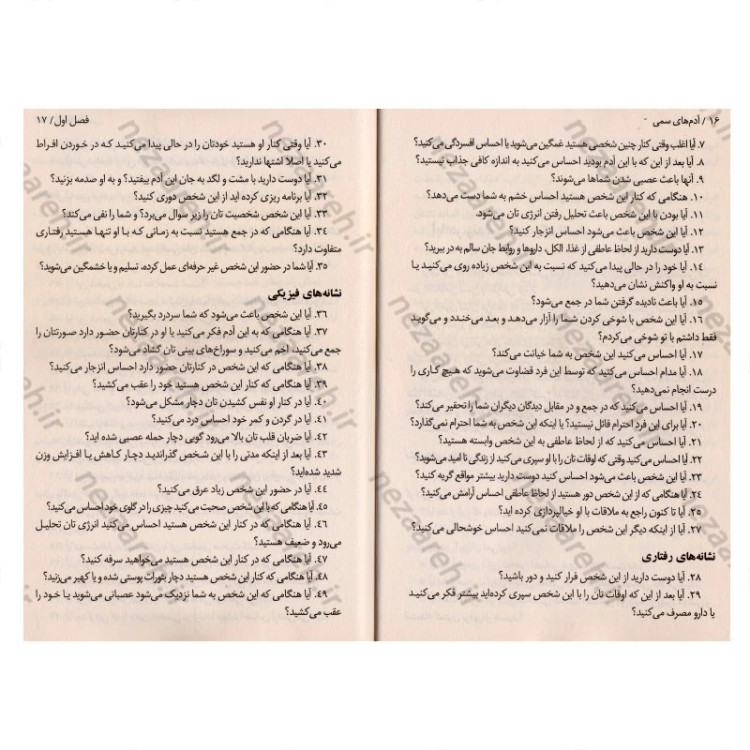 ۱۶ / آدم‌های سمی
۷. آیا اغلب وقتی کنار چنین شخصی هستید غمگین می‌شوید یا احساس افسردگی می‌کنید؟
۸. آیا بعد از این که با این آدم بودید احساس می‌کنید به اندازه کافی جذاب نیستید؟
۹. آنها باعث عصبی شدن شماها می‌شوند؟
۱۰. هنگامی که کنار این شخص هستید احساس خشم به شما دست می‌دهد؟
۱۱. آیا بودن با این شخص باعث تحلیل رفتن انرژی تان می‌شود.
۱۲. آیا این شخص باعث می‌شود احساس انزجار کنید؟
۱۳. آیا دوست دارید از لحاظ عاطفی از غذا، الکل، داروها و روابط جان سالم به در ببرید؟
۱۴. آیا خود را در حالی پیدا می‌کنید که نسبت به این شخص زیاده روی می‌کنید یا
نسبت به او واکنش نشان می‌دهید؟
۱۵. آیا باعث نادیده گرفتن شما در جمع می‌شود؟
۱۶. آیا این شخص با شوخی کردن شما را آزار می‌دهد و بعد می‌خندد و می‌گوید
فقط داشتم با تو شوخی می‌کردم؟
۱۷. آیا احساس می‌کنید این شخص به شما خیانت می‌کند؟
۱۸. آیا مدام احساس می‌کنید که توسط این فرد قضاوت می‌شوید که هیچ کاری را
درست انجام نمی‌دهید؟
۱۹. آیا احساس می‌کنید که در جمع و در مقابل دیدگان دیگران شما را تحقیر می‌کند؟
۲۰. آیا برای این فرد احترام قائل نیستید؟ یا اینکه این شخص به شما احترام نمی‌گذارد؟
۲۱. آیا احساس می‌کنید که از لحاظ عاطفی به این شخص وابسته هستید؟
۲۲. آیا احساس می‌کنید وقتی که اوقات تان را با او سپری می‌کنید از زندگی نا امید می‌شوید؟
۲۳. آیا این شخص باعث می‌شود احساس کنید دوست دارید بیشتر مواقع گریه کنید؟
۲۴. آیا هنگامی که از این شخص دور هستید از لحاظ عاطفی احساس آرامش می‌کنید؟
۲۵. آیا تا کنون راجع به ملاقات با او خیالپردازی کرده اید؟
۲۷. آیا از اینکه دیگر این شخص را ملاقات نمی‌کنید احساس خوشحالی می‌کنید؟
نشانه‌های رفتاری
۲۸. آیا دوست دارید از این شخص فرار کنید و دور باشید؟
۲۹. آیا بعد از این که اوقات تان را با این شخص سپری کرده‌اید بیشتر فکر می‌کنید
یا دارو مصرف می‌کنید؟
فصل اول / ۱۷
۳۰. آیا وقتی کنار او هستید خودتان را در حالی پیدا می‌کنید که در خوردن افراط
می‌کنید یا اصلا اشتها ندارید؟
۳۱. آیا دوست دارید با مشت و لگد به جان این آدم بیفتید؟ و به او صدمه بزنید؟
۳۲. آیا برنامه ریزی کرده اید از این شخص دوری کنید؟
۳۳. آیا این شخص شخصیت تان را زیر سوال می‌برد؟ و شما را نفی می‌کند؟
۳۴. آیا هنگامی که در جمع هستید نسبت به زمانی که با او تنها هستید رفتاری
متفاوت دارد؟
۳۵. آیا شما در حضور این شخص غیر حرفه‌ای عمل کرده، تسلیم و یا خشمگین می‌شوید؟
نشانه‌های فیزیکی
۳۶. آیا این شخص باعث می‌شود که شما سردرد بگیرید؟
۳۷. آیا هنگامی که به این آدم فکر می‌کنید یا او در کنارتان حضور دارد صورتتان را
جمع می‌کنید، اخم می‌کنید و سوراخ‌های بینی تان گشاد می‌شود؟
۳۸. آیا هنگامی که این شخص در کنارتان حضور دارد احساس انزجار می‌کنید؟
۳۹. آیا هنگامی که کنار این شخص هستید خود را عقب می‌کشید؟
۴۰. آیا در کنار او نفس کشیدن تان دچار مشکل می‌شود؟
۴۱. آیا در گردن و کمر خود احساس درد می‌کنید؟
۴۲. آیا ضربان قلب تان بالا می‌رود گویی دچار حمله عصبی شده اید؟
۴۳. آیا بعد از اینکه مدتی را با این شخص گذراندید دچار کاهش یا افزایش وزن
شدید شده‌اید؟
۴۴. آیا در حضور این شخص زیاد عرق می‌کنید؟
۴۵. آیا هنگامی که با این شخص صحبت می‌کنید چیزی را در گلوی خود احساس می‌کنید؟
۴۶. آیا هنگامی که در کنار این شخص هستید احساس می‌کنید انرژی تان تحلیل
می‌رود و ضعیف هستید؟
۴۷. آیا هنگامی که در کنار این شخص هستید می‌خواهید سرفه کنید؟
۴۸. آیا هنگامی که کنار این شخص هستید دچار بثورات پوستی شده و یا کهیر می‌زنید؟
۴۹. آیا هنگامی که این شخص به شما نزدیک می‌شود عصبانی می‌شوید یا خود را
عقب می‌کشید؟
nezaareh.ir